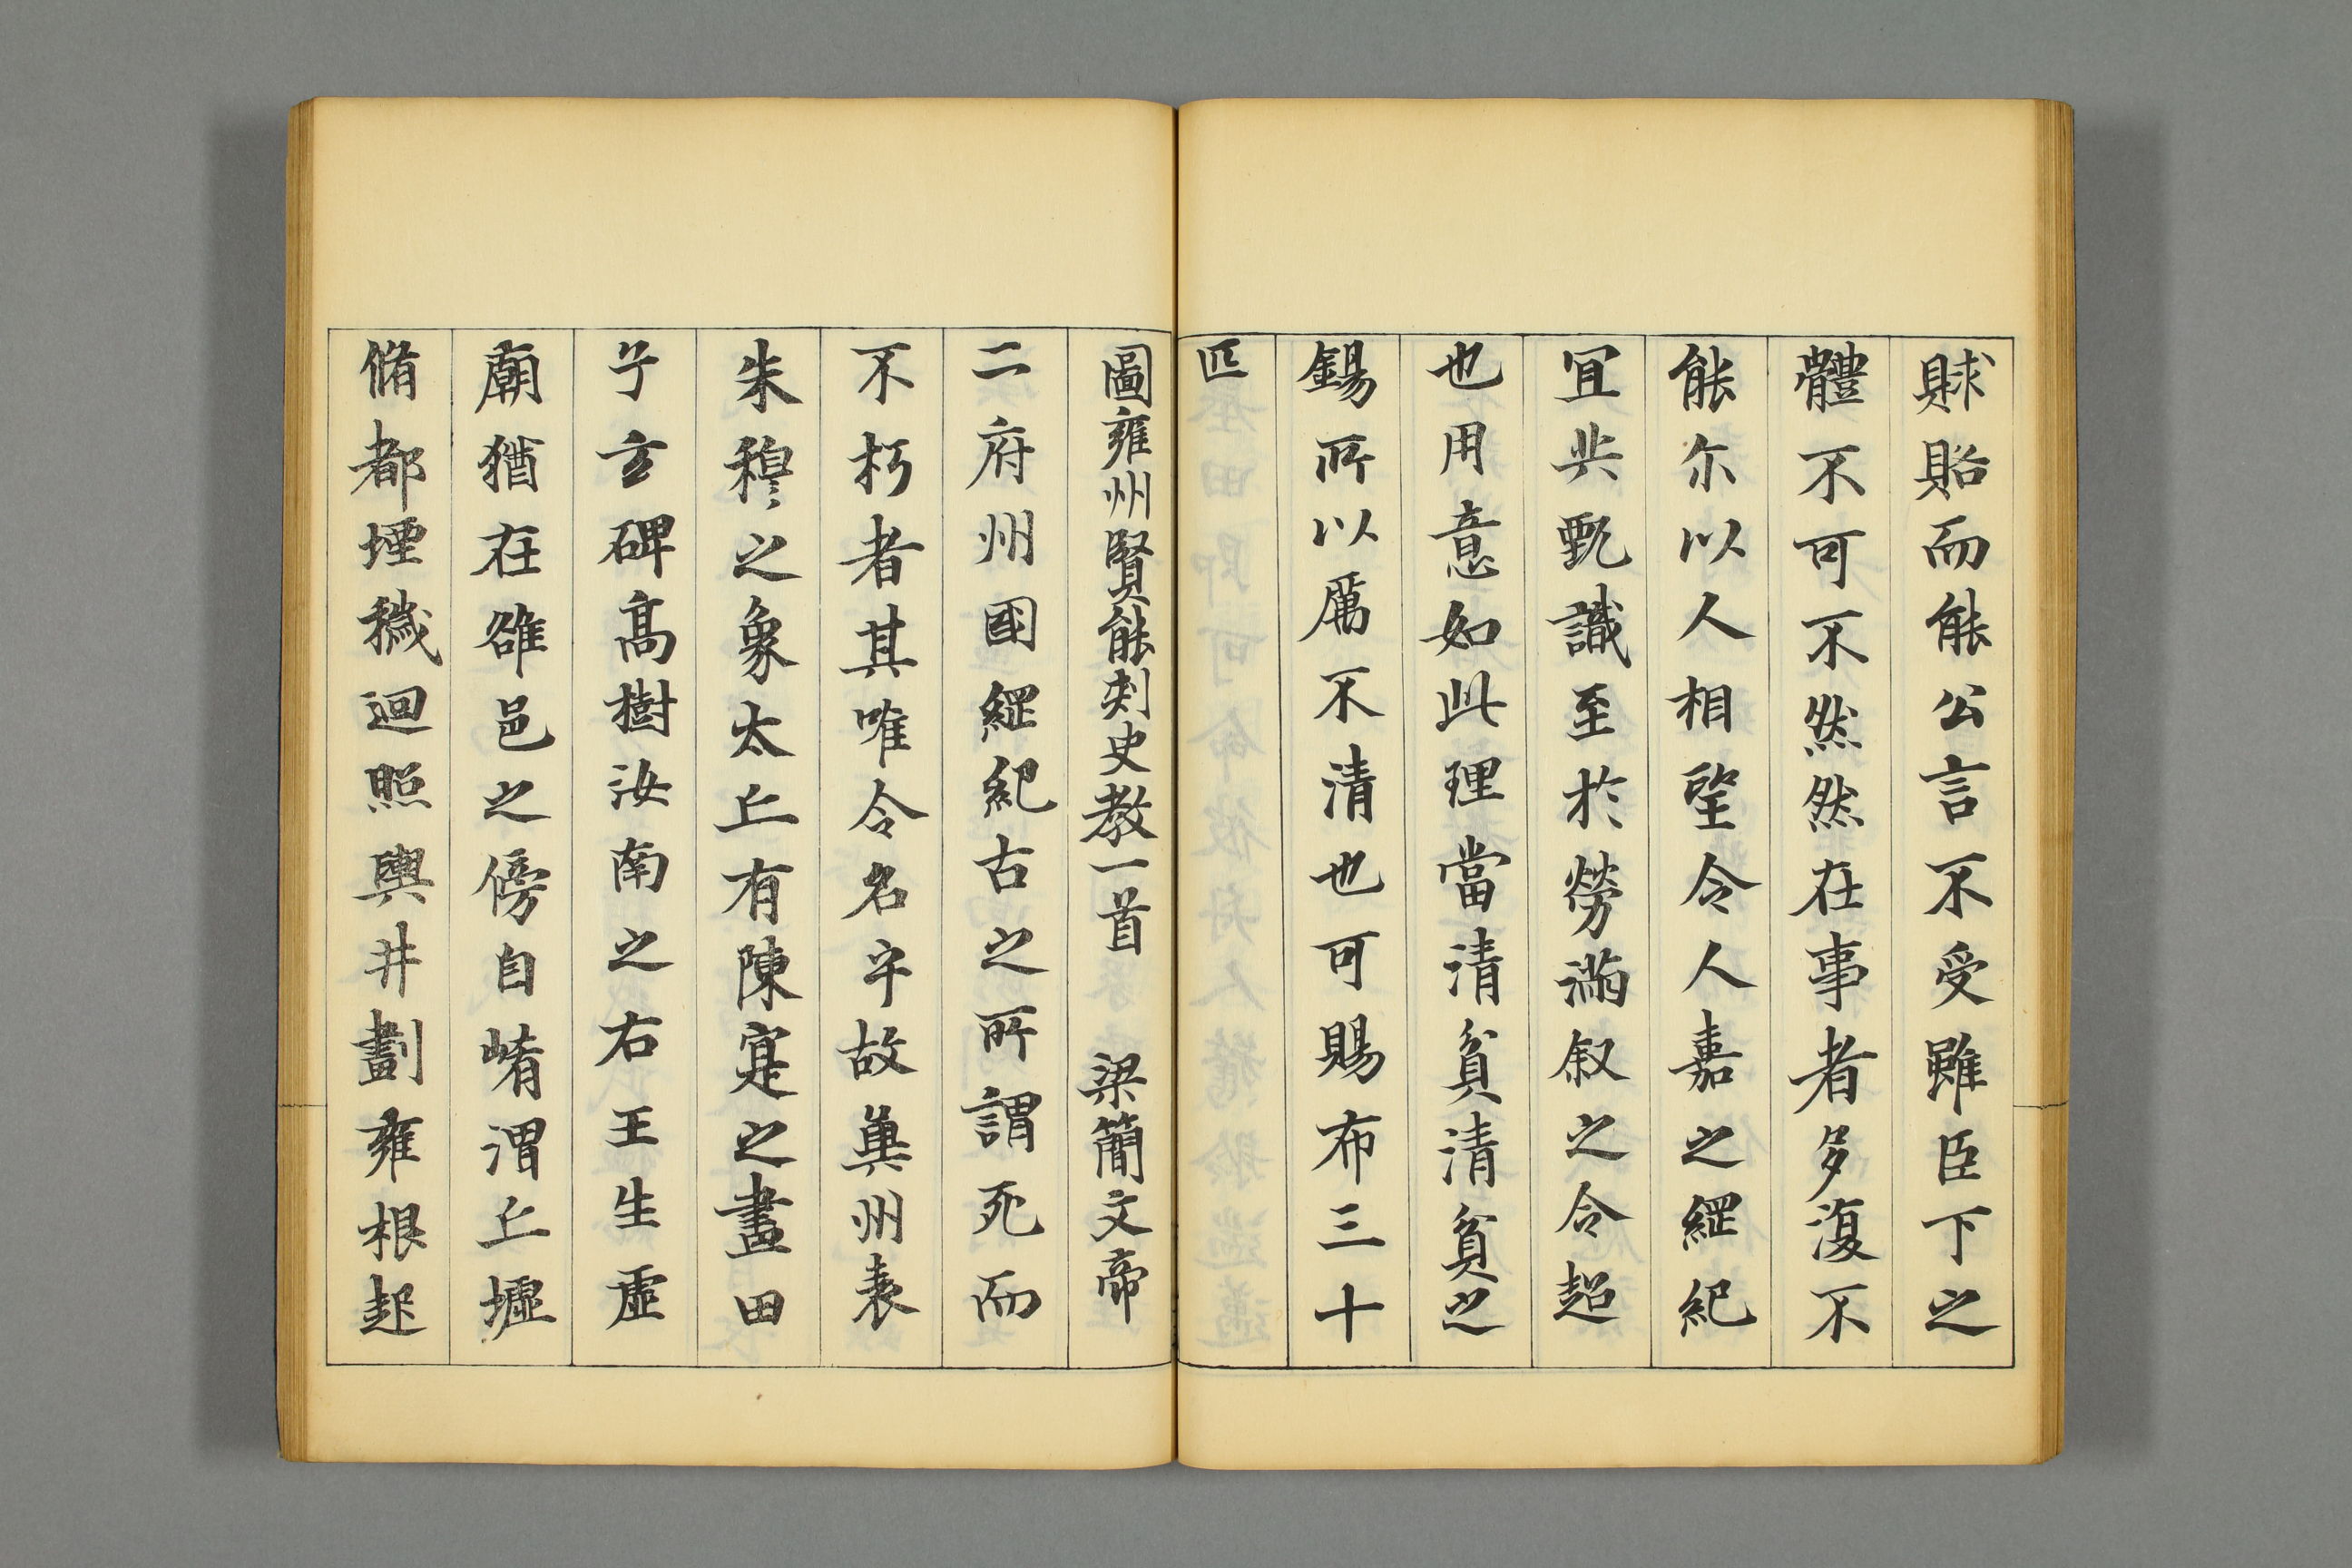 賕貽而能公言不受雖臣下之
體不可不然然在事者多復不
能尓以人相望令人嘉之綱紀
冝共甄識至於勞滿叙之令超
也用意如此理當清貧清貧之
錫所以厲不清也可賜布三十
匹
圖雍州賢能刾史教一首 梁簡文帝
二府州國綱紀古之所謂死而
不朽者其唯令名乎故冀州表
朱穆之象太丘有陳寔之畫田
子玄碑髙樹汝南之右王生虛
廟猶在雒邑之傍自崤渭丘墟
脩都堙穢迴照輿井劃雍根起